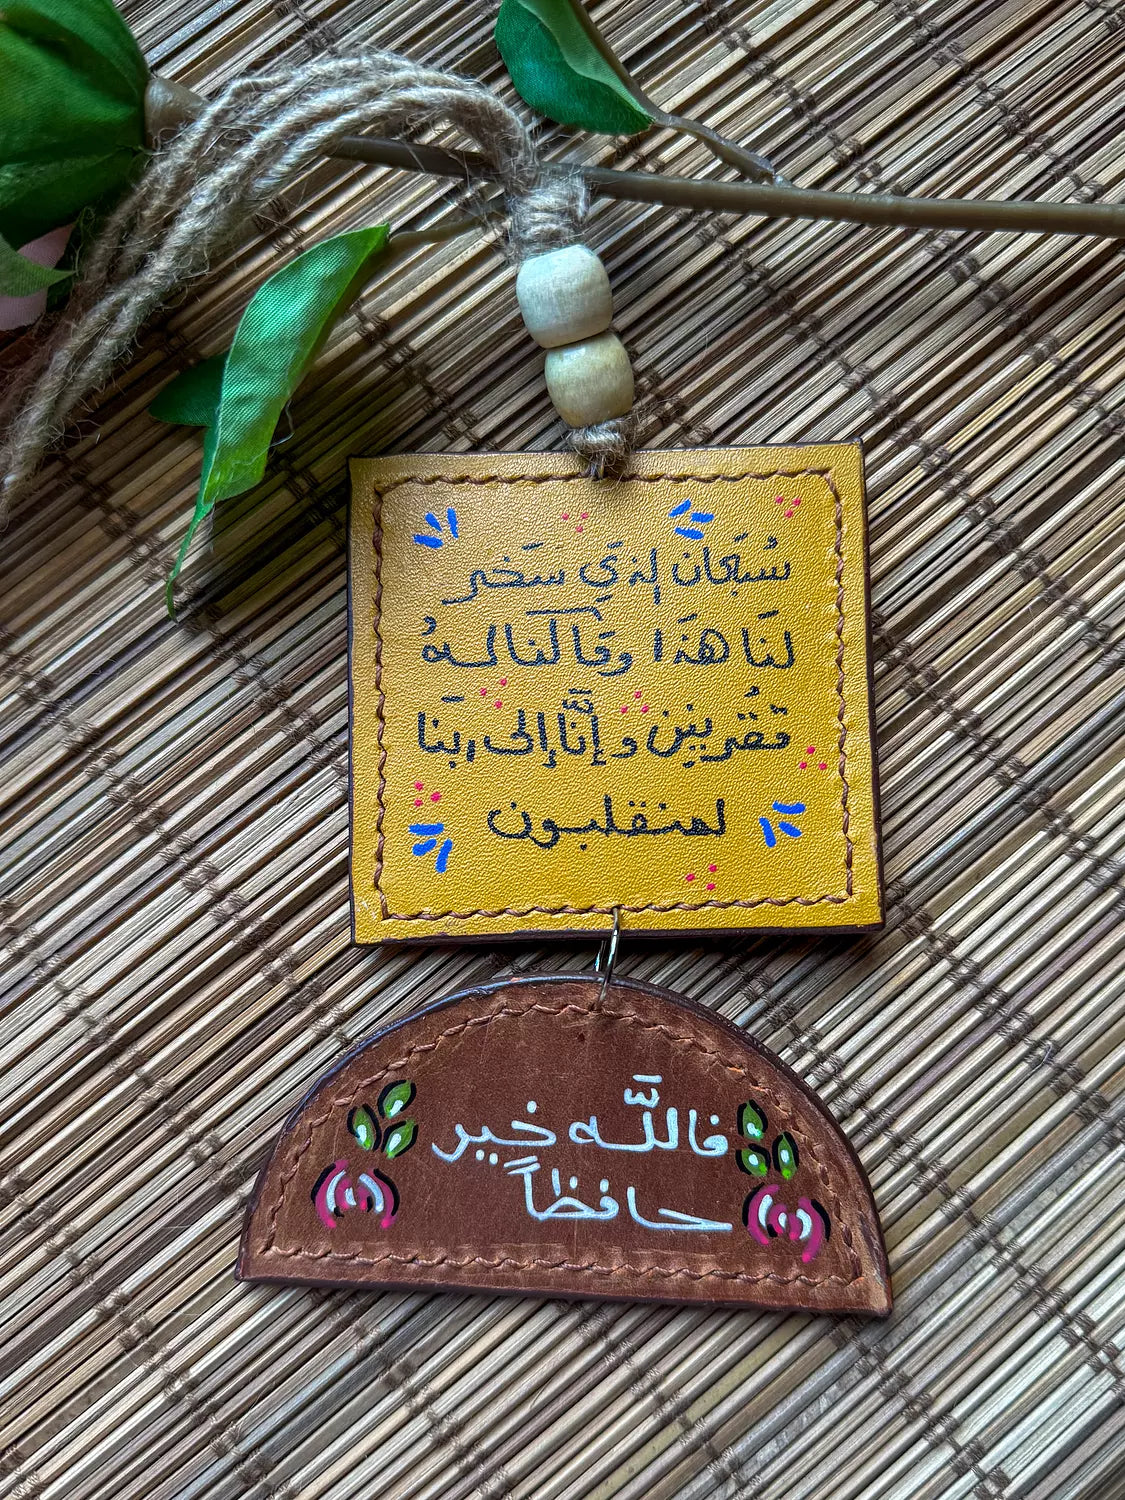 سُبحَان لذي سَخر
لنَا هذَا وما كُنا لهُ
مُقرنين و إنَّا إلى ربنَا
لمنقلبون
فاللَّه خير
حافظاً